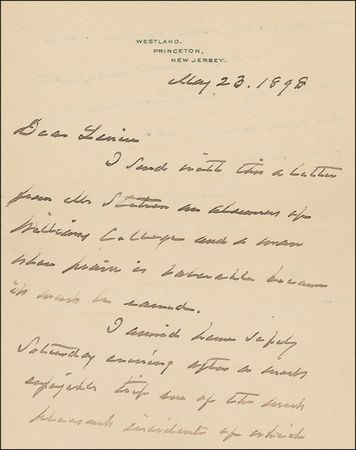 WESTLAND.
PRINCETON,
NEW JERSEY.
May 23. 1898
Dear
I send with this a letter
from Mr an alumnus of
Williams College and a man
whose praise is valuable because
it must be earned.
I arrived home safely
Saturday evening after a most
enjoyable trip one of the most
pleasant incidents of which